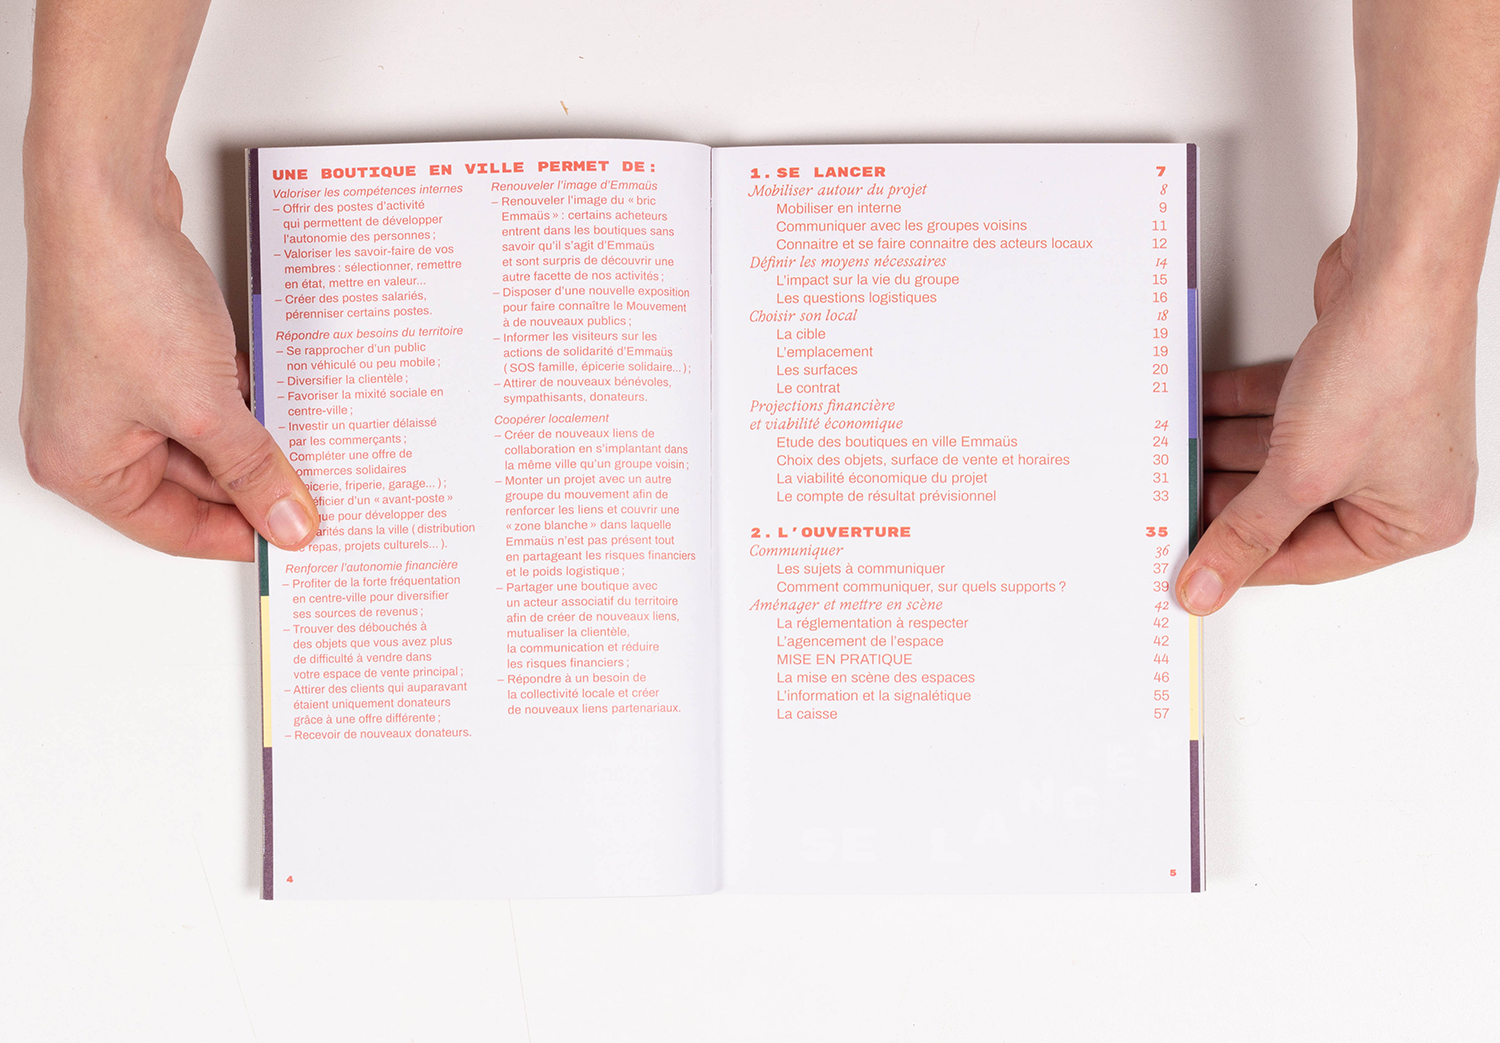 UNE BOUTIQUE EN VILLE PERMET DE :
Valoriser les compétences internes
– Offrir des postes d’activité
qui permettent de développer
l’autonomie des personnes ;
– Valoriser les savoir-faire de vos
membres : sélectionner, remettre
en état, mettre en valeur...
– Créer des postes salariés,
pérenniser certains postes.
Répondre aux besoins du territoire
– Se rapprocher d’un public
non véhiculé ou peu mobile ;
– Diversifier la clientèle ;
– Favoriser la mixité sociale en
centre-ville ;
– Investir un quartier délaissé
par les commerçants ;
Compléter une offre de
solidaires
friperie, garage... ) ;
d’un « avant-poste »
pour développer des
dans la ville ( distribution
repas, projets culturels... ).
Renforcer l’autonomie financière
– Profiter de la forte fréquentation
en centre-ville pour diversifier
ses sources de revenus ;
– Trouver des débouchés à
des objets que vous avez plus
de difficulté à vendre dans
votre espace de vente principal ;
– Attirer des clients qui auparavant
étaient uniquement donateurs
grâce à une offre différente ;
– Recevoir de nouveaux donateurs.
Renouveler l’image d’Emmaüs
– Renouveler l’image du « bric
Emmaüs » : certains acheteurs
entrent dans les boutiques sans
savoir qu’il s’agit d’Emmaüs
et sont surpris de découvrir une
autre facette de nos activités ;
– Disposer d’une nouvelle exposition
pour faire connaître le Mouvement
à de nouveaux publics ;
– Informer les visiteurs sur les
actions de solidarité d’Emmaüs
( SOS famille, épicerie solidaire... ) ;
– Attirer de nouveaux bénévoles,
sympathisants, donateurs.
Coopérer localement
– Créer de nouveaux liens de
collaboration en s’implantant dans
la même ville qu’un groupe voisin ;
– Monter un projet avec un autre
groupe du mouvement afin de
renforcer les liens et couvrir une
« zone blanche » dans laquelle
Emmaüs n’est pas présent tout
en partageant les risques financiers
et le poids logistique ;
– Partager une boutique avec
un acteur associatif du territoire
afin de créer de nouveaux liens,
mutualiser la clientèle,
la communication et réduire
les risques financiers ;
– Répondre à un besoin de
la collectivité locale et créer
de nouveaux liens partenariaux.
4
1. SE LANCER 7
Mobiliser autour du projet 8
Mobiliser en interne 9
Communiquer avec les groupes voisins 11
Connaitre et se faire connaitre des acteurs locaux 12
Définir les moyens nécessaires 14
L’impact sur la vie du groupe 15
Les questions logistiques 16
Choisir son local 18
La cible 19
L’emplacement 19
Les surfaces 20
Le contrat 21
Projections financière
et viabilité économique 24
Etude des boutiques en ville Emmaüs 24
Choix des objets, surface de vente et horaires 30
La viabilité économique du projet 31
Le compte de résultat prévisionnel 33
2. L’OUVERTURE 35
Communiquer 36
Les sujets à communiquer 37
Comment communiquer, sur quels supports ? 39
Aménager et mettre en scène 42
La réglementation à respecter 42
L’agencement de l’espace 42
MISE EN PRATIQUE 44
La mise en scène des espaces 46
L’information et la signalétique 55
La caisse 57
5